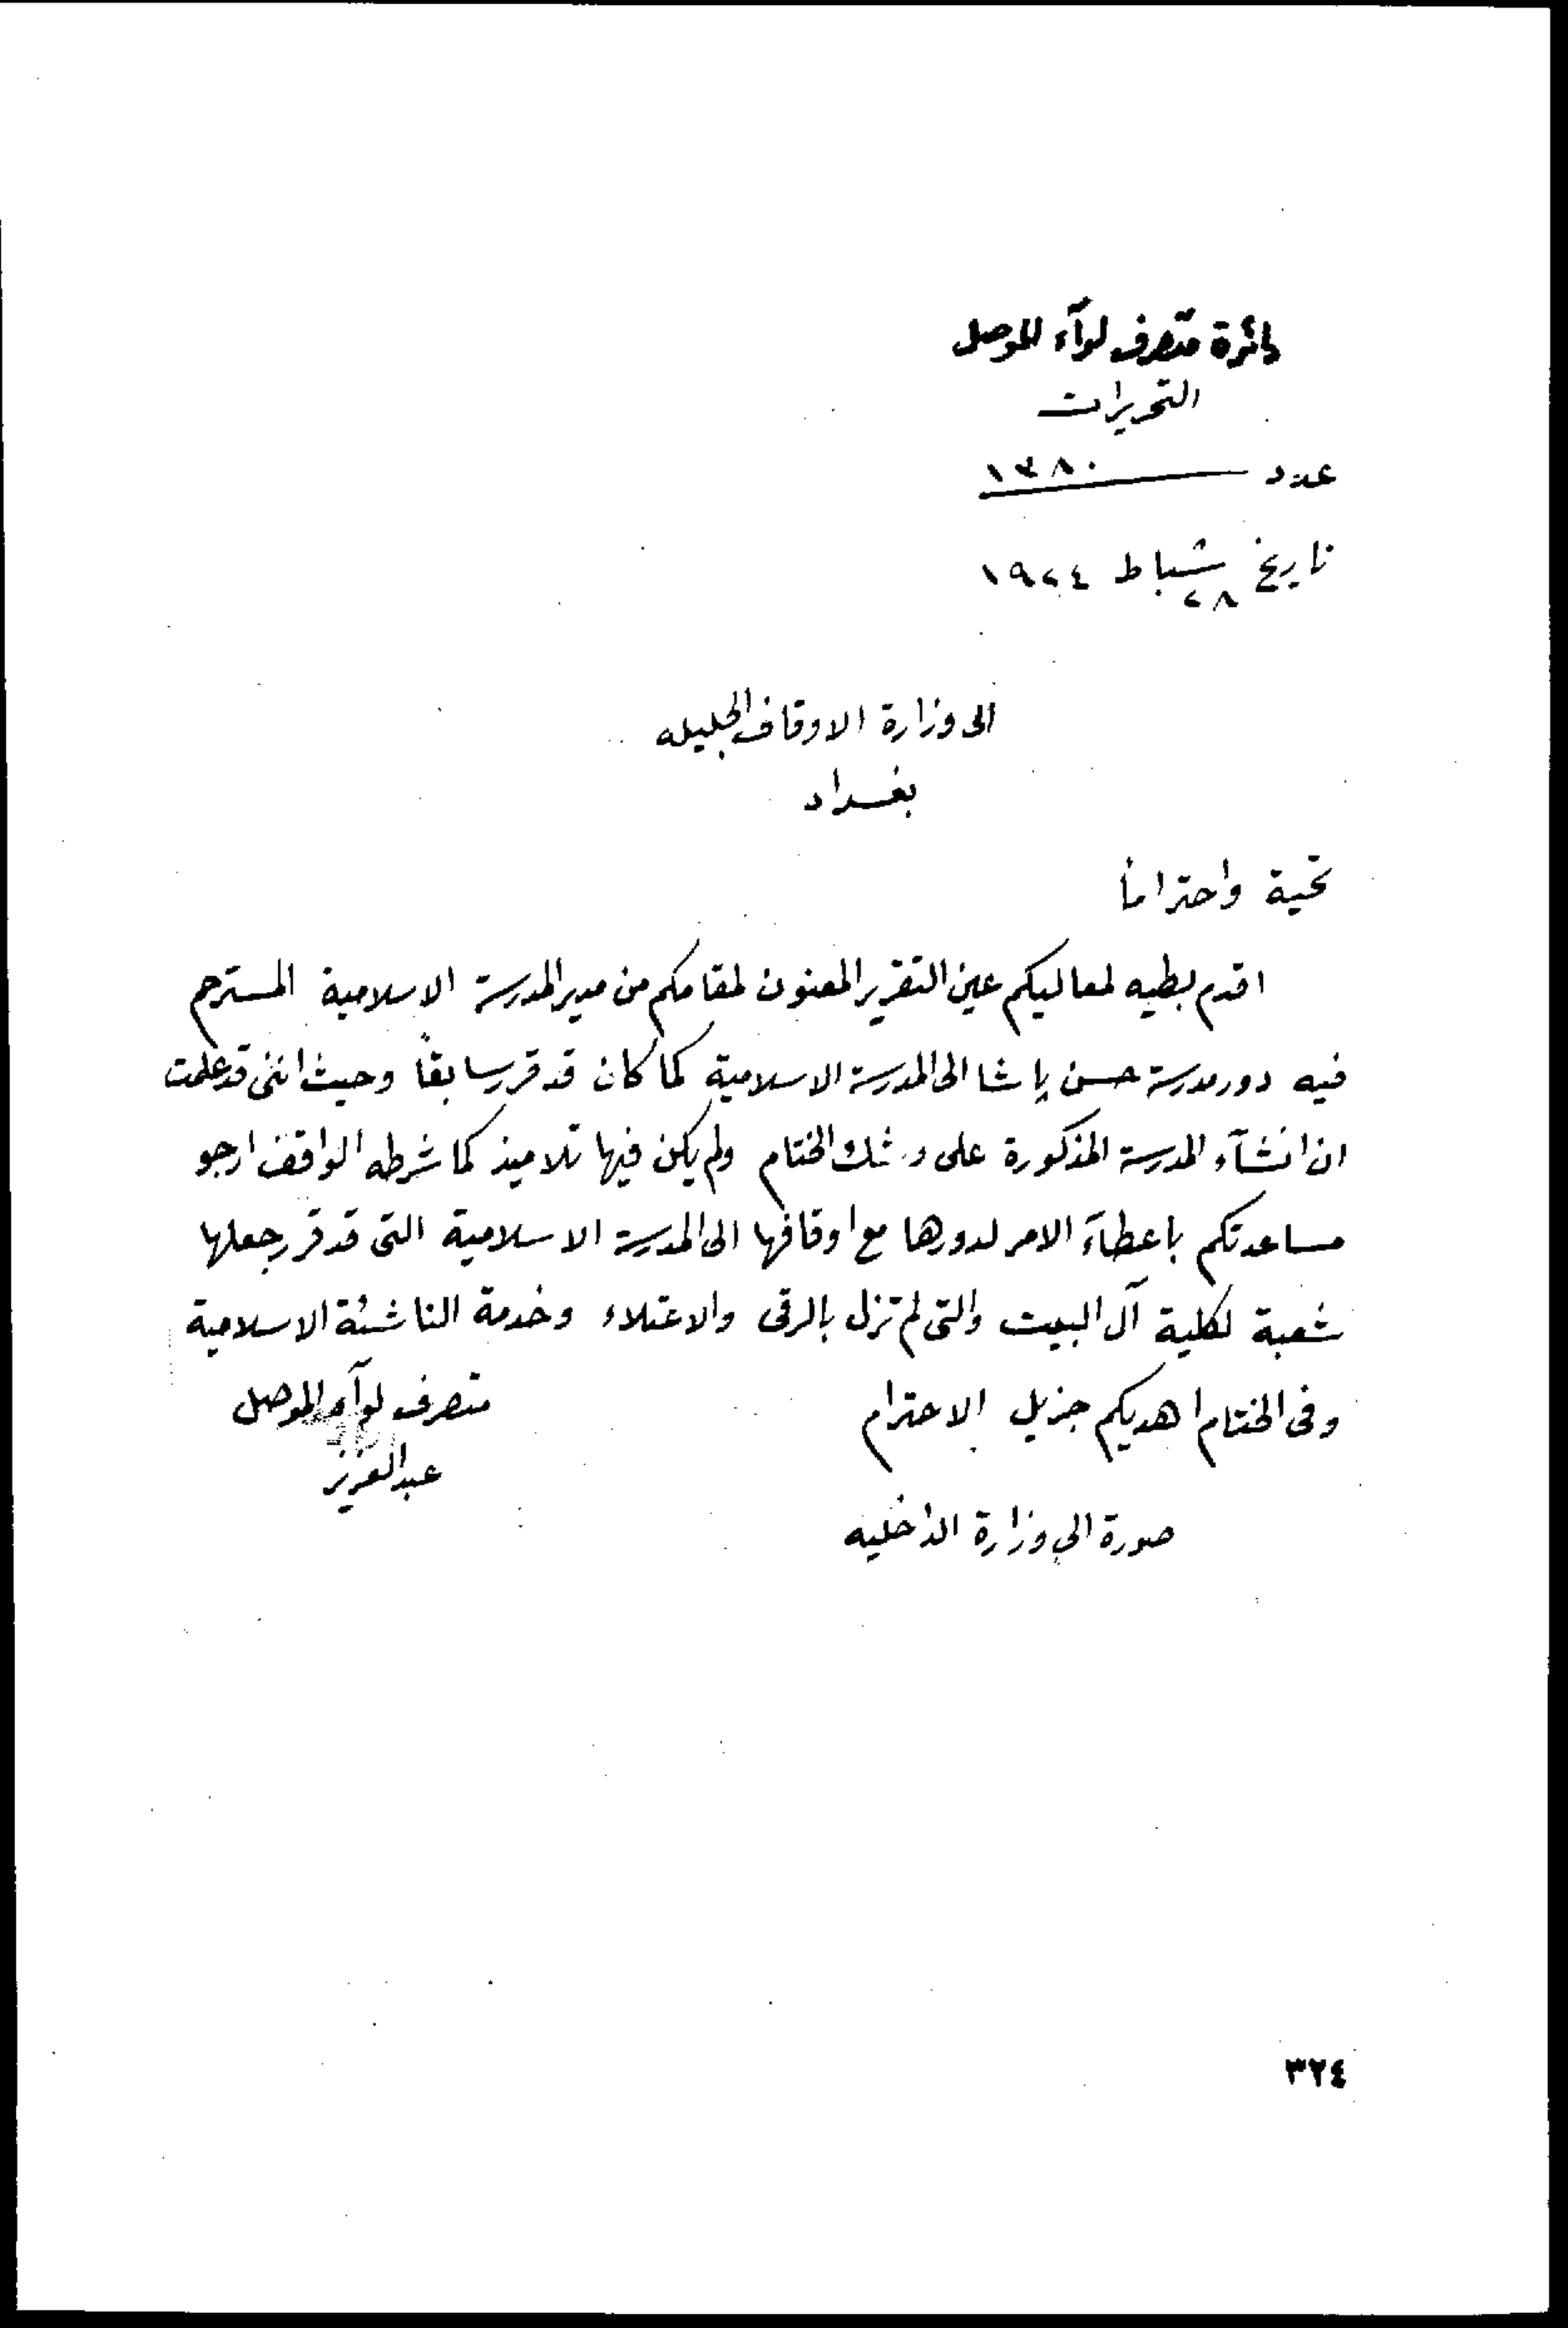 دائرة متصرف لوآء الموصل
التحريرات
عدد ١٣٨٠
تاريخ شباط ١٩٢٤
٢٨
الى وزارة الاوقاف الجليله
بغداد
تحية واحتراماً
اقدم بطيه لمعاليكم عين التقرير المعنون لمقامكم من مدير المدرسة الاسلامية المسترحم
فيه دور مدرسة حسن پاشا الى المدرسة الاسلامية كما كان قد قرر سابقاً وحيث اننى قد علمت
ان انشآء المدرسة المذكورة على وشك الختام ولم يكن فيها تلاميذ كما شرطه الواقف ارجو
مساعدتكم باعطآء الامر لدورها مع اوقافها الى المدرسة الاسلامية التى قد قرر جعلها
شعبة لكلية آل البيت والتى لم تزل بالرقى والاعتلاء وخدمة الناشئة الاسلامية
وفى الختام اهديكم جزيل الاحترام
متصرف لوآء الموصل
عبد العزيز
صورة الى وزارة الداخليه
٣٢٤